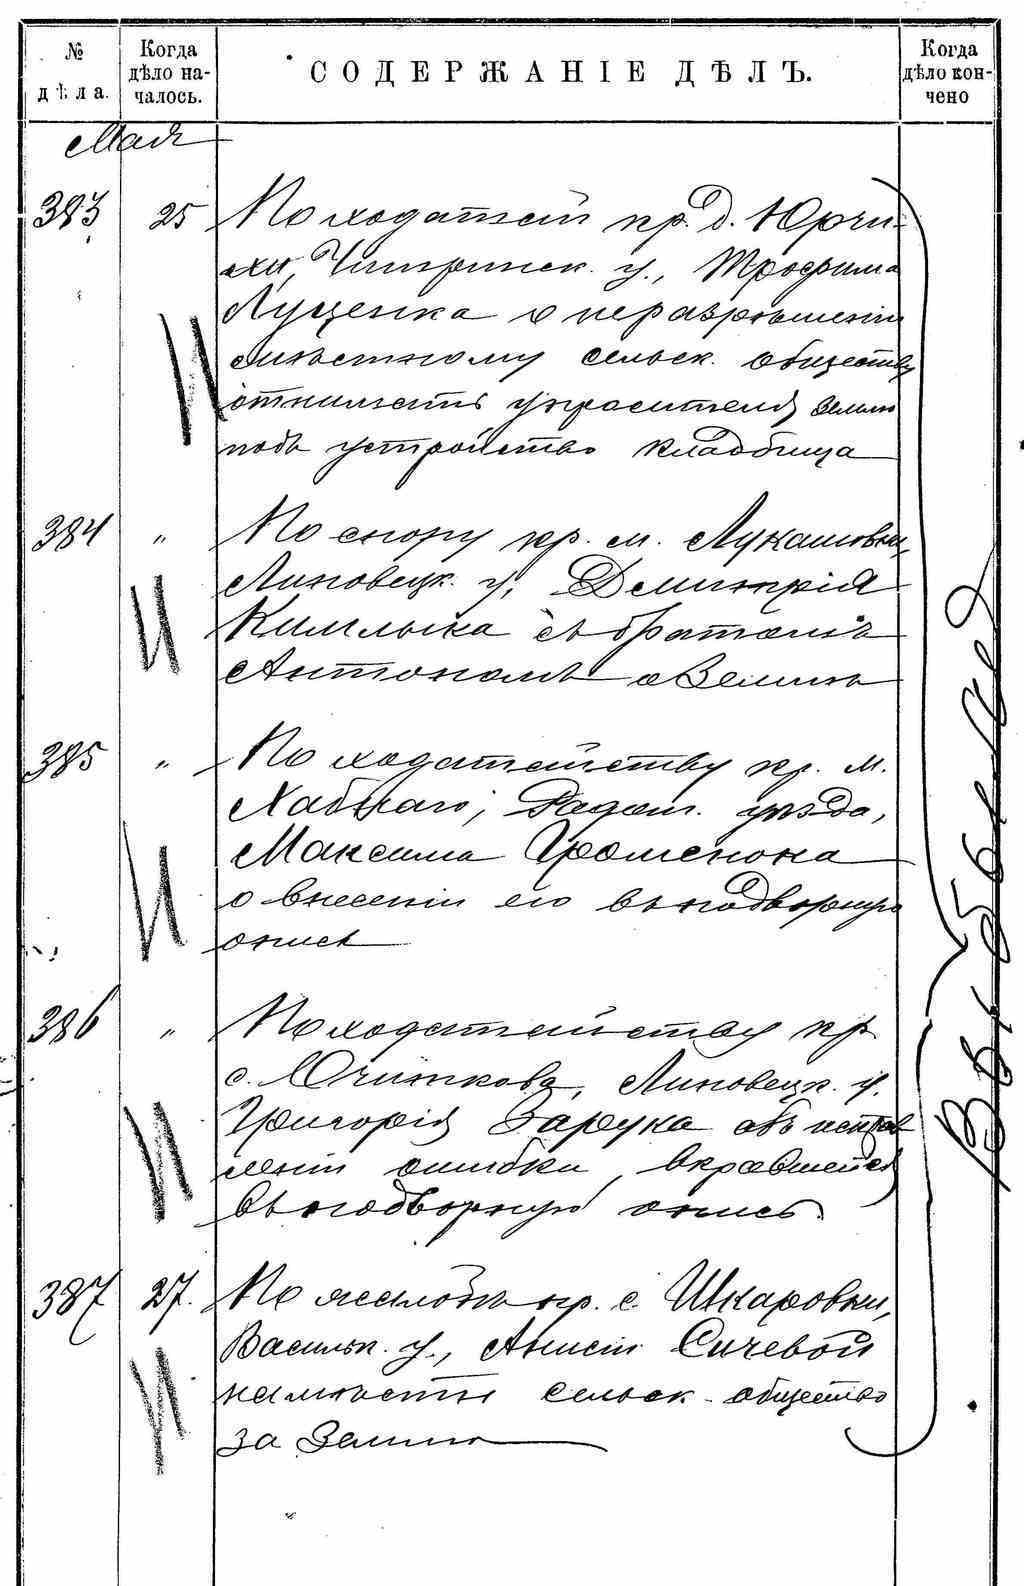 № дѣла.
Когда дѣло началось.
СОДЕРЖАНІЕ ДѢЛЪ.
Когда дѣло кончено
Мая
383 25 По ходатай кр. д. Юрчи-
хи, Чигиринск. у., Трофима
Луценка о неразрѣшеніи
мѣстному сельск. обществу
отнимать у просителя землю
подъ устройство кладбища
384 " По спору кр. м. Лукашовки,
Липовецк. у., Дмитрія
съ братомъ
Антономъ о землѣ
385 " По ходатайству кр. м.
Хабнаго, Радом. уѣзда,
Максима
о внесеніи его въ подворную
опись
386 " По ходатайству кр
с. Очиткова, Липовецк. у.
Григорія Зарука объ исправ
леніи ошибки, вкравшейся
въ подворную опись.
387 27. По жалобѣ кр. с. Шкаровки,
Васильк. у., Анисіи Сичевой
на мѣстн сельск. общество
за землю